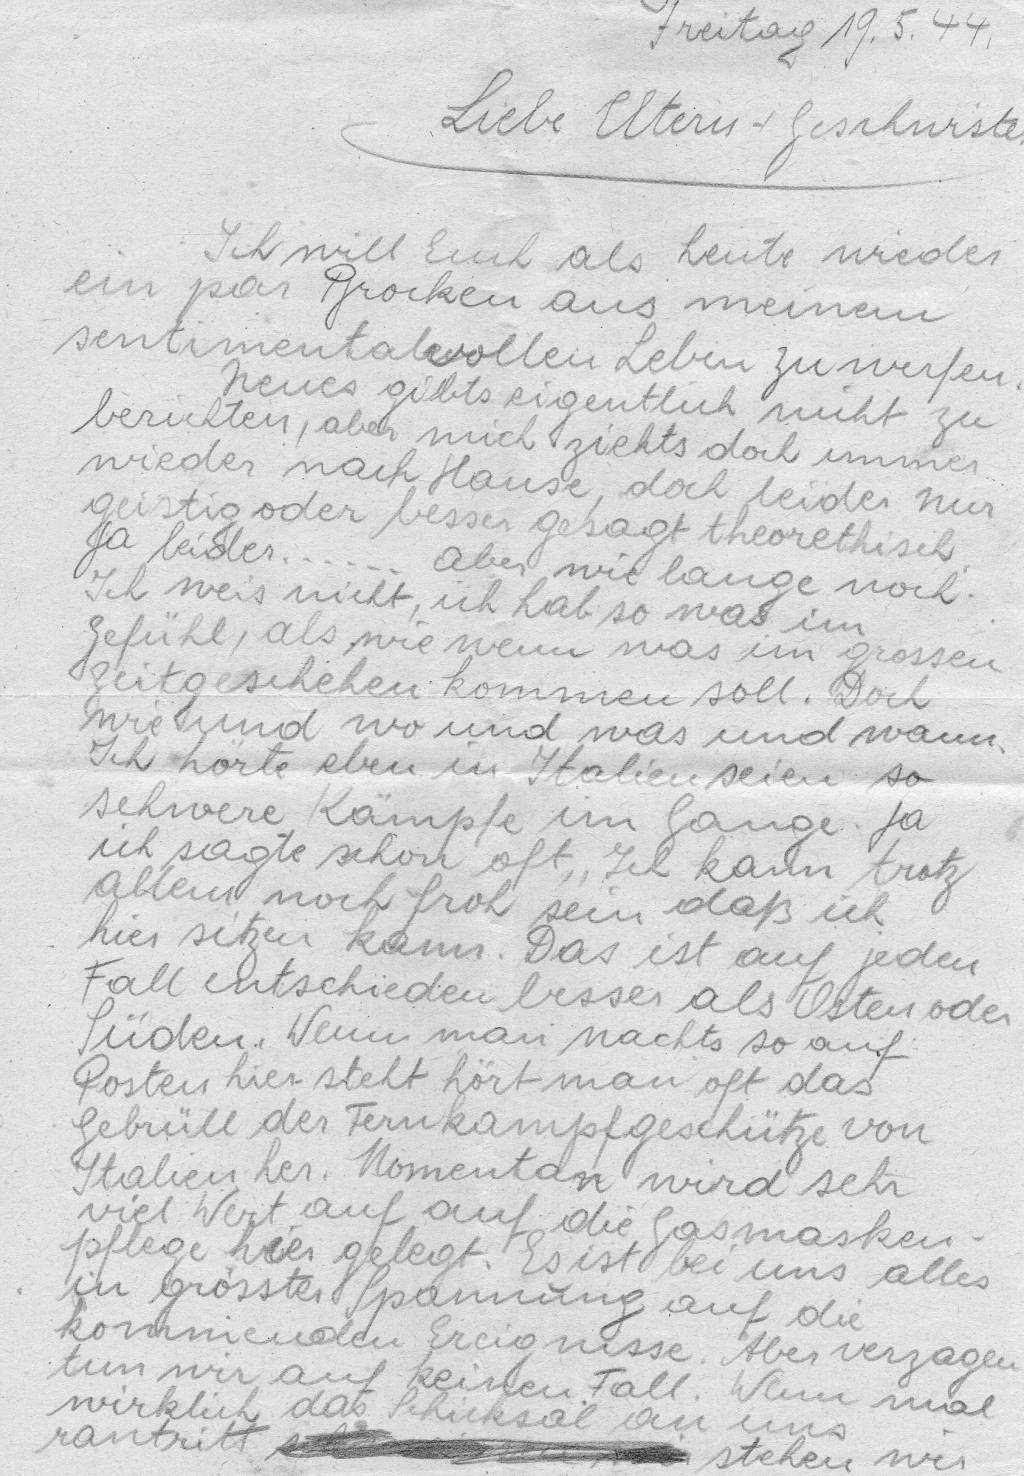 Freitag 19. 5. 44.
Liebe Eltern + Geschwister
Ich will Euch als heute wieder
ein par Brocken aus meinem
sentimentalvollen Leben zu werfen.
Neues gibts eigentlich nicht zu
berichten, aber mich ziehts doch immer
wieder nach Hause, doch leider nur
geistig oder besser gesagt theorethisch
Ja leider...... aber wie lange noch.
Ich weis nicht, ich hab so was im
Gefühl, als wie wenn was im grossen
Zeitgeschehen kommen soll. Doch
wie und wo und was und wann.
Ich hörte eben in Italien seien so
schwere Kämpfe im Gange. Ja
ich sagte schon oft „Ich kann trotz
allem noch froh sein daß ich
hier sitzen kann. Das ist auf jeden
Fall entschieden besser als Osten oder
Süden. Wenn man nachts so auf
Posten hier steht hört man oft das
Gebrüll der Fernkampfgeschütze von
Italien her. Momentan wird sehr
viel Wert auf auf die Gasmasken-
pflege hier gelegt. Es ist bei uns alles
in grösster Spannung auf die
kommenden Ereignisse. Aber verzagen
tun wir auf keinen Fall. Wenn mal
wirklich das Schicksal an uns
rantritt stehen wir